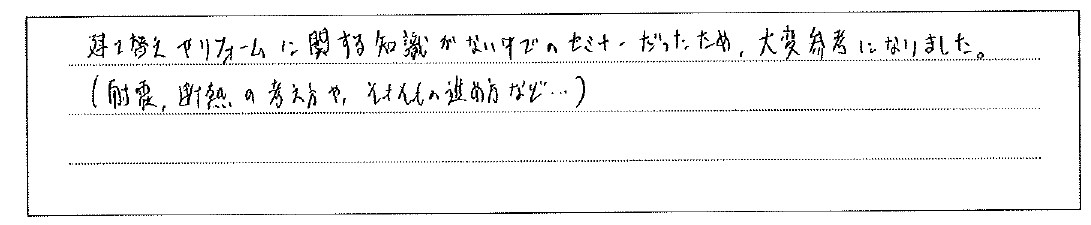 建て替えやリフォームに関する知識がない中でのセミナーだったため、大変参考になりました。
(耐震、断熱の考え方や、そもそもの進め方など…)